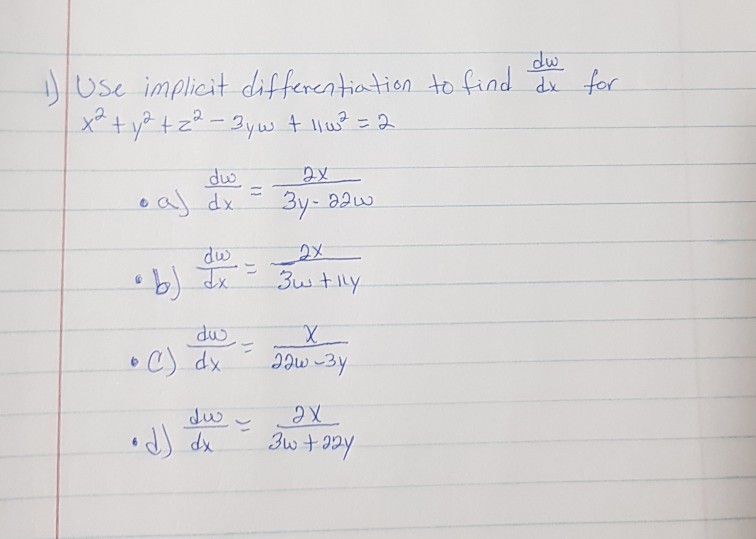 1) Use implicit differentiation to find dw/dx for
x² + y² + z² - 3yw + 11w² = 2
• a) dw/dx = 2x/(3y - 22w)
• b) dw/dx = 2x/(3w + 11y)
• c) dw/dx = x/(22w - 3y)
• d) dw/dx = 2x/(3w + 22y)